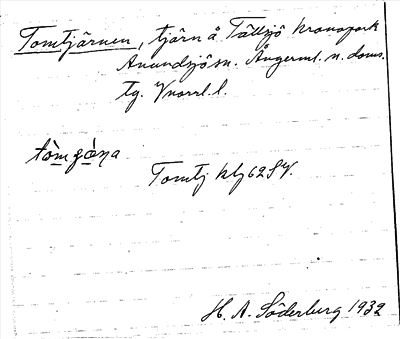 Tomtjärnen, tjärn å Tällsjö kronopark
Anundsjö sn. Ångerml. n. doms.
tg. Vnorrl. l.
tòmg
Tomtj klj 62 SV.
H. A. Söderburg 1932